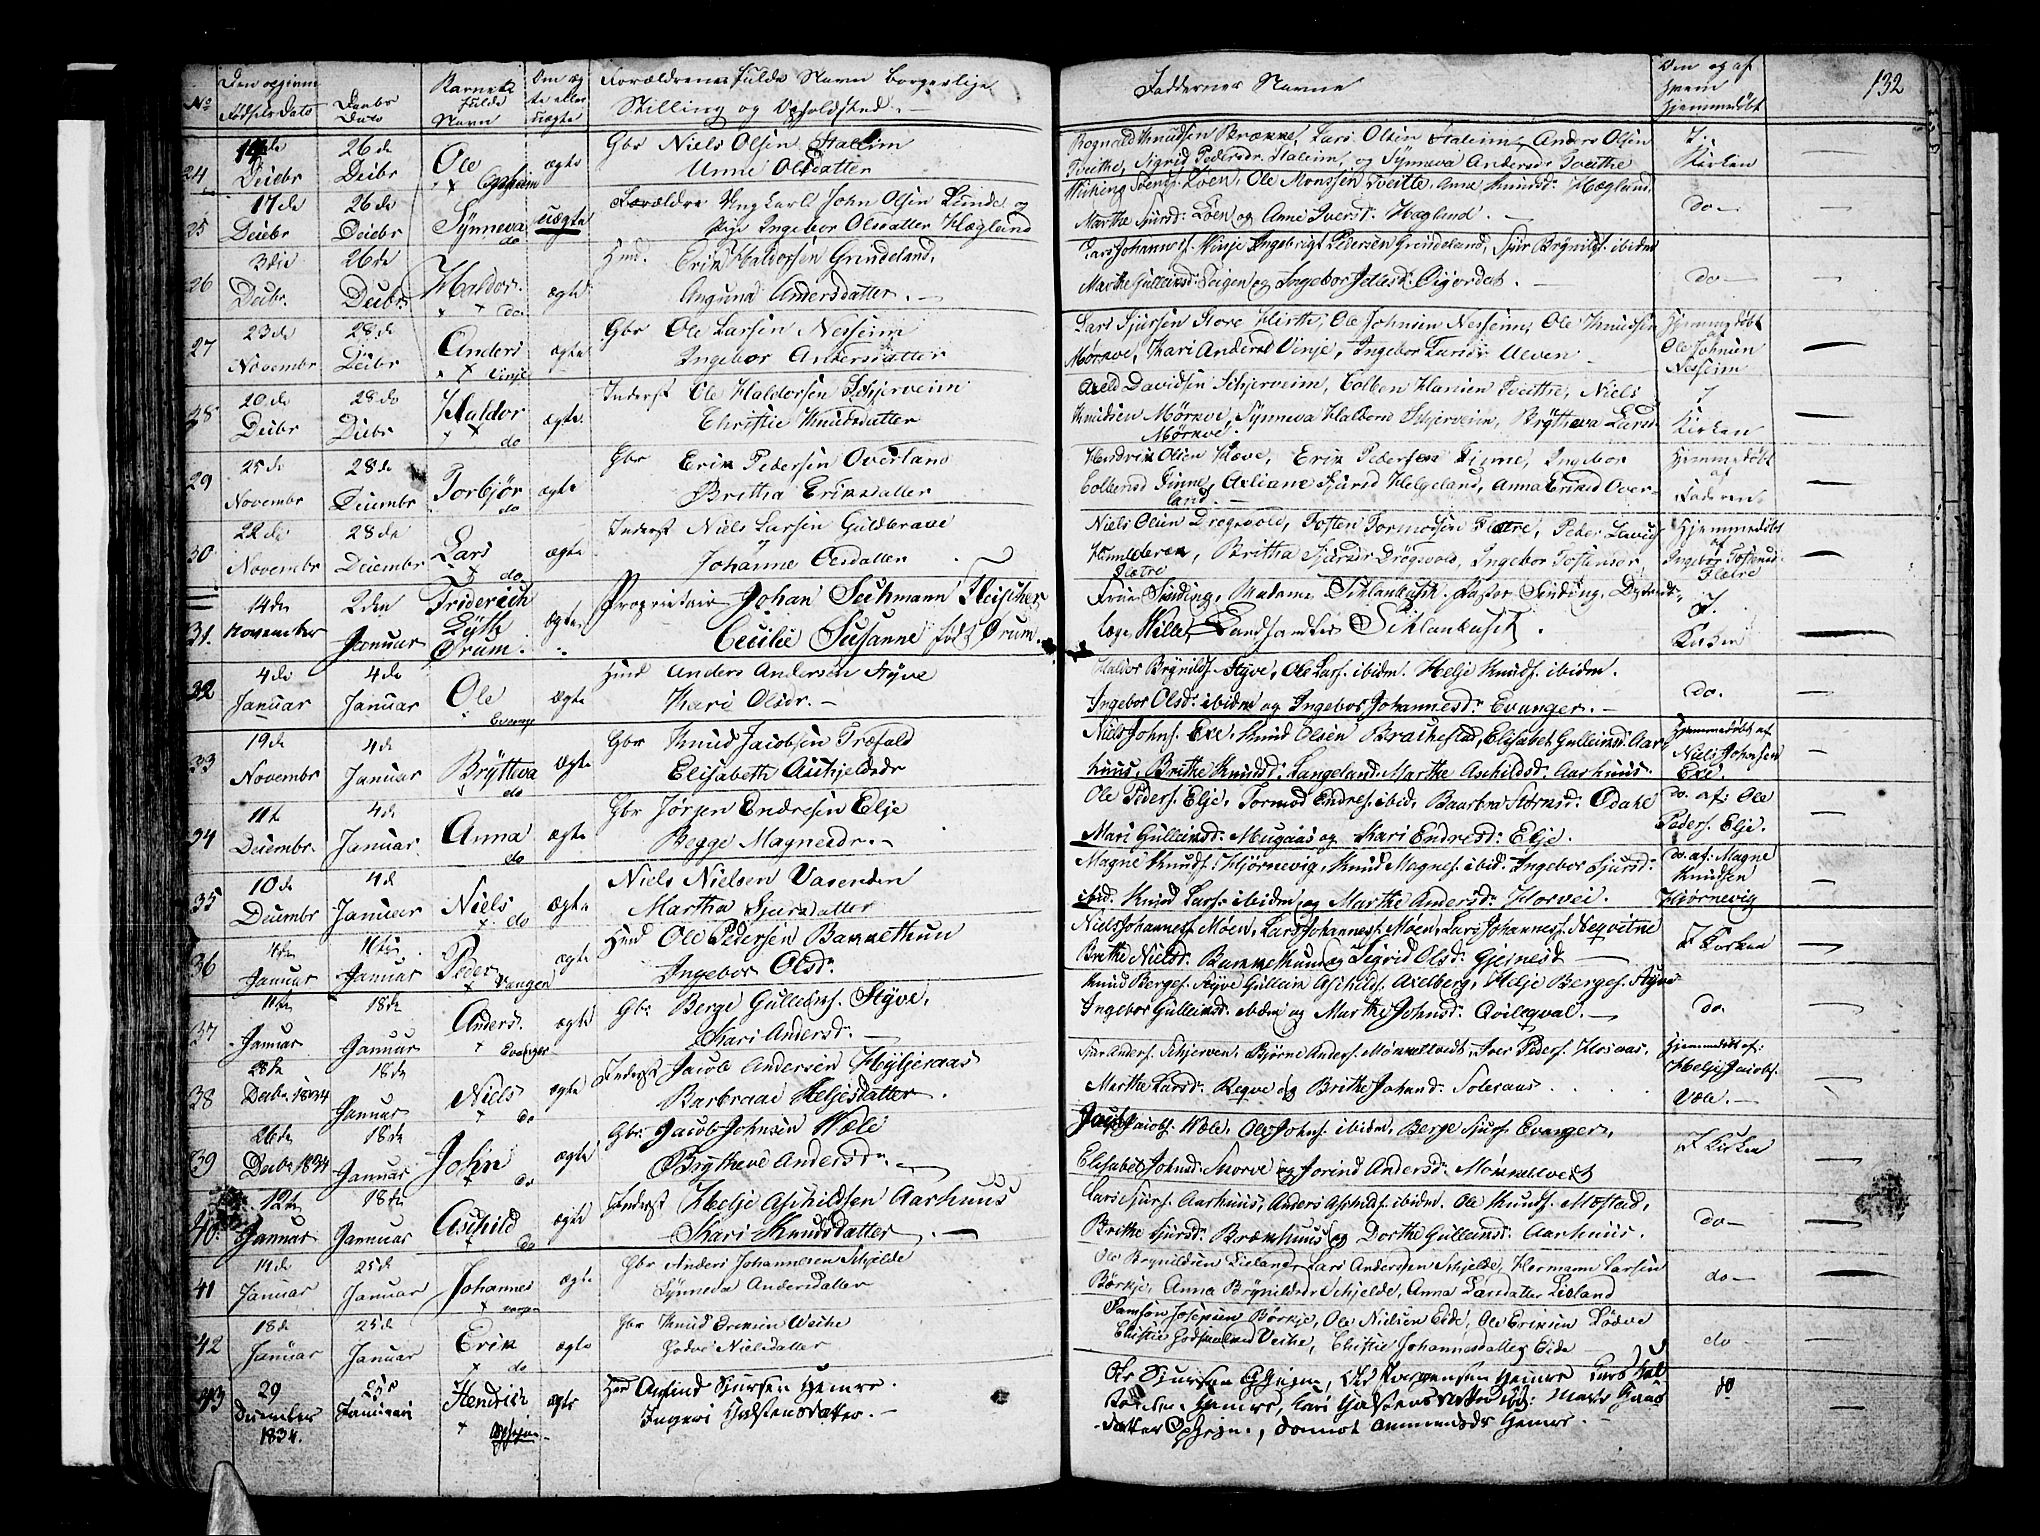 Den o
Fødsels Dato
Daabs
Dato
Barnets
fulde
Navn
Om æg
te eller
uægte
Forældrenes fulde Navn borgerlige
Stilling og Opholdsted.
Faddernes Navne
Om og af
hvem
hjemmedøbt
132
No
24
14de Decbr
26de Decbr
Ole
ægte
Gbr Niels Olsen Staleim
Unne Olsdatter
Rognald Knudsen Brække, Lars Olsen Staleim, Anders Olsen
Tveithe, Sigrid Pedersdr Staleim, og Synneva Andersd: Tveithe
I
Kirken
25
17de Decbr
26de Decbr
Synneva
do
uægte
Forældre Ungkarl John Olsen Lunde og
Pige Ingebor Olsdatter Hæglund
Løen, Ole Monssen Tveitte, Anne Knudsd: Hæglund,
Marthe Sjursd: Løen og Anne Iversd: Hæglund.
do
26
3die Decbr
26de Decbr
Haldor.
do
ægte
Huusd. Erik Haldorsen Grindeland,
Angund Andersdatter.
Lars Johannesf. Vinje Ingebrigt Pedersen Grindeland, Sjur Brynilds. ibidem
Marthe Gulleiksd: Teigen og Ingebor
do
27
23de Novembr
28de Decbr
Anders
Vinje
ægte
Gbr Ole Larsen Nesheim
Ingebor Andersdatter
Lars Sjursen Store Hirth, Ole Johnsen Nesheim, Ole Knudsen
Mørkve, Kari Andersd Vinje, Ingebor Larsdr Ulven
Hjemmedøbt
af
Ole Johnsen
Nesheim
28
20de Decbr
28de Decbr
Haldor
do
ægte.
Inderst Ole Haldorsen Schjerveim
Christie Knudsdatter
Davidsen Schjerveim, Colben Hansen Tveithe, Niels
Knudsen Mørkve, Synneva Haldorsd Schjerveim, Brytheva Larsd
Mørkve.
I
Kirken
29
25de Novembr
28de Decembr
Torbjør
do
ægte
Gbr Erik Pedersen Overland
Brittha Eriksdatter
Hendrik Olsen Hæve, Erik Pedersen Finne, Ingebor
Colbensd Finne, Sjursd Helgeland, Anna Eriksd Over-
land.
Hjemmedøbt
af
Faderen
30
22de Novembr
28de Decembr
Lars
do
ægte
Inderst Niels Larsen Guldbrave
og
Johanne Olsdatter
Niels Olsen Drøgsvold, Tosten Tormodsen Flætre, Peder Larsen
Brittha Sjursdr Drøgsvold, Ingebor Tostensdr,
Flætre
Hjemmedøbt
af
Ingebor Tostensd
Flætre
31.
14de November
2den Januar
Friderich
Lyth
Ørum.
ægte.
Proprietair Johan Sechmann Fleischer
Cecilie Susanne født Ørum.
Frue Sinding, Madame Schlanbusch, Pastor Sinding, Distrikts-
læge Wille, Landhandler Schlanbusch.
I.
Kirken
32
4de Januar
4de Januar
Ole
Evanger
ægte
Huusd Anders Andersen Styve
Kari Olsdr.
Haldor Brynilds. Styve, Ole Lars. ibidm. Helje Knuds. ibidm.
Ingebor Olsd: ibidm og Ingebor Johannesd: Evanger.
do.
33
19de Novembr
4de Januar
Brytteva
do
ægte
Gbr Knud Jacobsen Træfald
Elisabeth Aschjeldsdr
Niels Johns. Exe, Knud Olsen Brachestad, Elisabet Gulleiksd: Aar-
huus, Brithe Knudsd: Langeland Marthe Aschildsd: Aarhuus.
Hjemmedøbt af
Niels Johnsen
Exe.
34
11te Decembr.
4de Januar
Anna
do
ægte
Gbr Jørgen Endresen Elje
Begge Magnesdr.
Ole Peders. Elje, Tormod Endres. ibid. Baarbra Odahl
Mari Gulleiksd: Mugaas og Kari Endresd: Elje.
do. af: Ole
Peders. Elje.
35
10de Decembr
4de Januar
Niels
do
ægte
Niels Nielsen Vasenden
Martha Sjursdatter
Magne Knuds. Hjørnevig, Knud Magnes. ibid. Ingebor Sjursd:
ibid. Knud Lars. ibidm og Marthe Andersd: Horvei.
do. af: Magne
Knudsen
Hjørnevig
36
4de Januar
11te Januar
Peder
Vangen
ægte
Huusd Ole Pedersen Bannethun
Ingebor Olsdr
Niels Johannesf Møen, Lars Johannesf Møen, Lars Johannesf.
Brithe Nielsd: og Sigrid Olsd: Gjernesd
I Kirken
37
11te Januar
18de Januar
Anders.
Evanger
ægte
Gbr Berge Gulleiks. Styve,
Kari Andersd:
Knud Berges. Styve Gulleik Aschilds. Axelberg, Helje Berges. Styve
Ingebor Gulleiksd: ibidm og Marthe Johnsd: Qvileqval.
do.
38
28de Decbr. 1834
18de Januar
Niels
do
ægte
Inderst Jacob Andersen Hyljeraas
Barbraae Heljesdatter.
Sjur Anders. Schjerven, Bjørne Anders. Mønneltvedt, Iver Peders. Horvei,
Marthe Larsd: Reque og Brithe Johansd: Soleraas.
Hjemmedøbt af:
Helje Jacobs.
Væle.
39
26de Decbr. 1834
18de Januar
John
do
ægte
Gbr. Jacob Johnsen Væle
Brytheve Andersdr.
Jacobs. Væle, Ole Johns. ibidm, Berge Sjurs. Evanger,
Elisabet Johnsd: Horve og Jorind Andersd: Mønneltvedt
I Kirken
40
12te Januar
18de Januar
Aschild
do
ægte
Inderst Helje Aschildsen Aarhuus
Kari Knudsdatter.
Lars Sjurs. Aarhuus, Anders Aschilds. ibidm. Ole Knuds. Mostad,
Brithe Sjursd: Brækhuus og Dorthe Gulleiksd: Aarhuus.
do
41
14de Januar
25de Januar
Johannes
ægte
Gbr Anders Johannesen Schjelde
Synneva Andersdatter
Ole Brynildsen Lieland, Lars Andersen Schjelde, Hermann Larsen
Børkje, Anna Brynildsdr Schjelde, Anna Larsdatter Lisland
do
42
18de Januar
25de Januar
Erik
do
ægte
Gbr Knud Eriksen Weihe
Godve Nielsdatter
Samson Josepsen Børkje, Ole Nielsen Eide, Ole Eriksen Lødve
Christie Veihe, Christie Johannesdatter Eide
do
43
29 December 1834.
25de Januari
Hendrich
ægte
Huusd Amund Sjursen Hemre.
Ingeri Holstensdatter.
Ole Sjursen Gjejm, Ole Torgersen Hemre Lars
Hemre, Kari Holstensdatter ibid: Marte
datter Gjejm, Dannot Ammundsdr Hemre
do